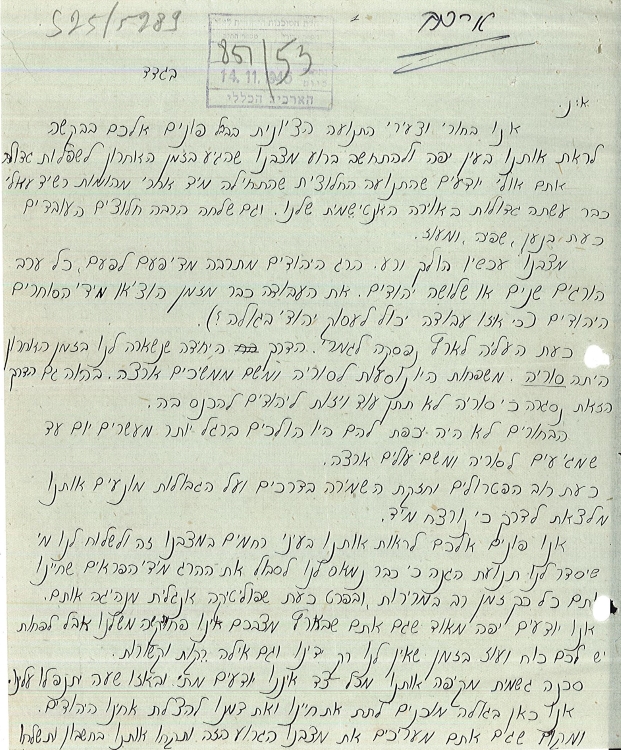 S25/5289
ארכיב
851/53
14.11.1945
הארכיב הכללי
בגדד
א.נ.
אנו בחורי וצעירי התנועה הציונית בבבל פונים אלכם בבקשה
לראת אותנו בעין יפה ולהתחשב ברוע מצבנו שהגע בזמן האחרון לשפלות גדולה
אתם אולי יודעים שהתנועה החלוצית שהתחילה מיד אחרי מהומות רשיד עאלי
כבר עשתה גדולות באוירה האנטישמית שלנו. וגם שלחה הרבה חלוצים העובדים
כעת בנען, שפיה, ומעוז.
מצבנו עכשיו הולך ורע. הרג היהודים מתרבה מדי פעם לפעם, כל ערב
הורגים שנים או שלושה יהודים. את העבודה כבר מזמן הוציאו מידי הסוחרים
היהודים (כי איזו עבודה יכול לעסוק יהודי בגולה?).
כעת העליה לארץ נפסקה לגמרי. הדרך היחידה שנשארה לנו בזמן האחרון
היתה סוריה. משפחות היו נוסעות לסוריה ומשם ממשיכים ארצה. בהיאה גם הדרך
הזאת נסגרה כי סוריה לא תתן עוד ויזות ליהודים להכנס בה.
הבחורים לא היה יכפת להם היו הולכים ברגל יותר מעשרים יום עד
שמגיעים לסוריה ומשם עולים ארצה.
כעת רוב הפטרולים וחזקת השמירה בדרכים ועל הגבולות מונעים אותנו
מלצאת לדרך כי נורצח מיד.
אנו פונים אלכם לראות אותנו בעיני רחמים במצבנו זה ולשלוח לנו מי
שיסדר לנו תנועת הגנה כי כבר נמאס לנו לסבול את ההרג מידי הפראים שחיינו
אתם כל כך זמן רב במרירות, ובפרט כעת שפוליטיקה אנגלית מנהיגה אותם.
אנו יודעים יפה מאוד שגם אתם שבארץ מצבכם אינו פחות קשה משלנו אבל לפחות
יש לכם כוח ועוז בזמן שאין לנו רק ידינו וגם אילה ריקות וקשורות.
סכנה גשמית מקיפה אותנו מכל צד איננו יודעים מתי ובאיזו שעה יתנפלו עלינו.
אנו כאן בגולה מוכנים לתת את חיינו ואת דמנו להצלת אחינו היהודים.
שגם אתם מעריכים את מצבנו הגרוע הזה ותקחו אותנו בחשבון ותשלחו